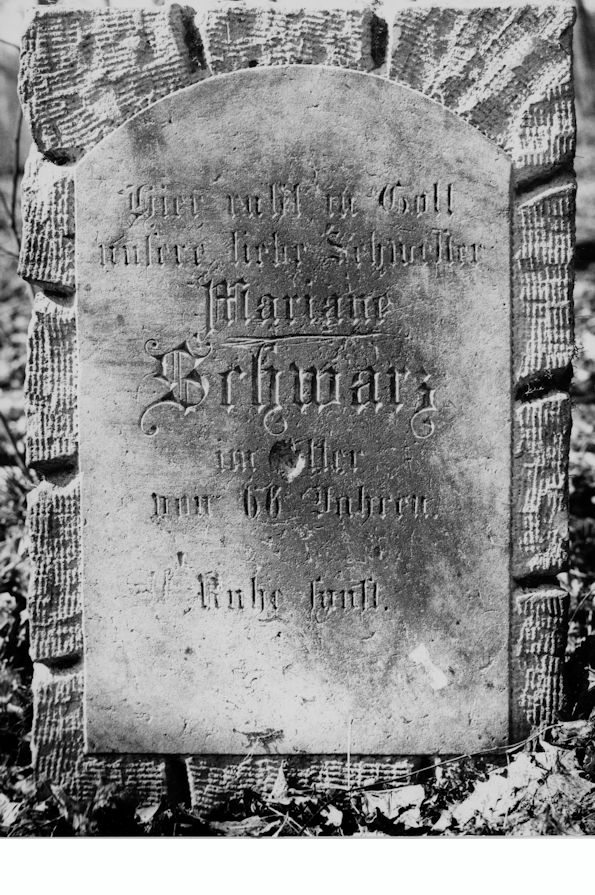 Hier ruht in Gott
unsere liebe Schwester
Mariane
Schwarz
im Alter
von 66 Jahren.
Ruhe sanft.